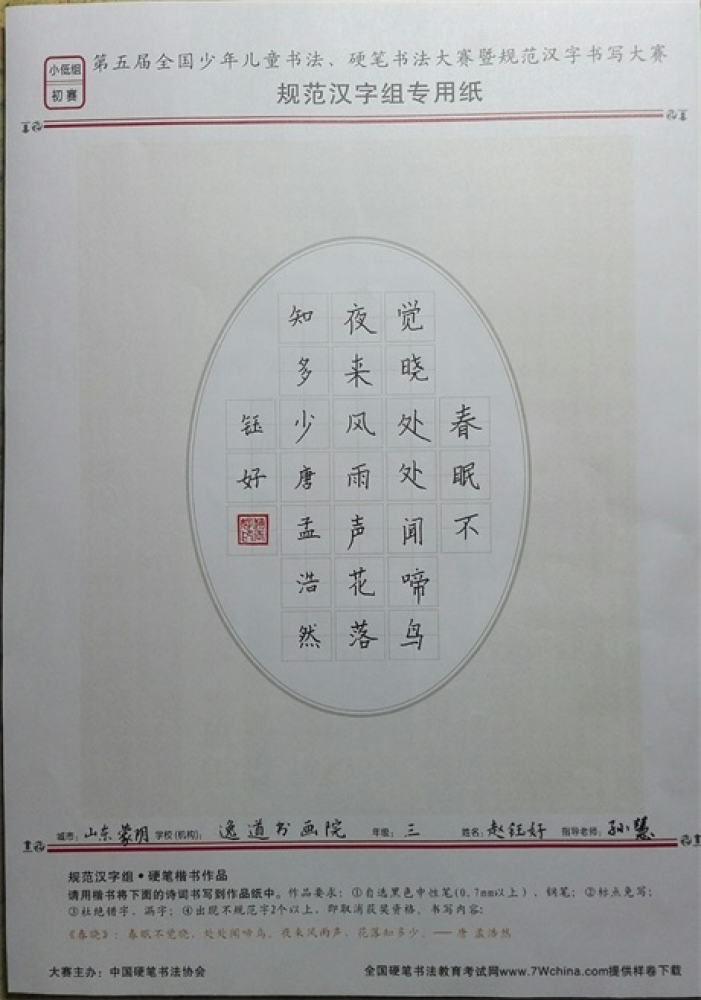 小低组
初赛
第五届全国少年儿童书法、硬笔书法大赛暨规范汉字书写大赛
规范汉字组专用纸
春眠不
觉晓处处闻啼鸟
夜来风雨声花落
知多少唐孟浩然
钰好
城市: 山东蒙阴 学校(机构): 逸道书画院 年级: 三 姓名: 赵钰好 指导老师: 孙慧
规范汉字组·硬笔楷书作品
请用楷书将下面的诗词书写到作品纸中。作品要求: ①自选黑色中性笔(0.7mm以上)、钢笔; ②标点免写;
③杜绝错字、漏字; ④出现不规范字2个以上, 即取消获奖资格。书写内容:
《春晓》: 春眠不觉晓, 处处闻啼鸟。夜来风雨声, 花落知多少。——唐 孟浩然
大赛主办: 中国硬笔书法协会 全国硬笔书法教育考试网www.7Wchina.com提供样卷下载